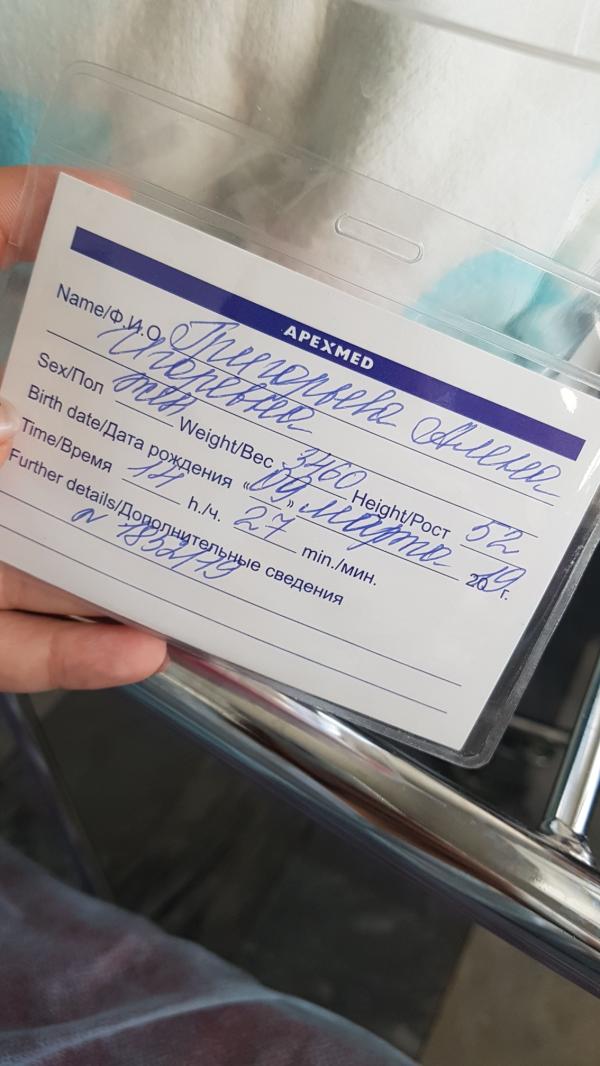 APEXMED
Name/Ф.И.О. Григорьева Алена
Игоревна
Sex/Пол жен Weight/Вес 3460 Height/Рост 52
Birth date/Дата рождения «09» марта 2019 г.
Time/Время 14 h./ч. 27 min./мин.
Further details/Дополнительные сведения
1852/19